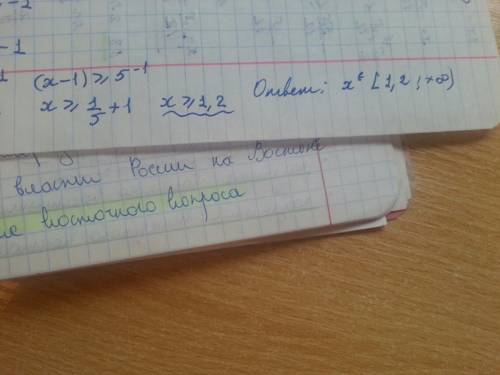 -1
-1
(x-1) ≥ 5⁻¹
x ≥ 1/5 + 1 x ≥ 1,2 Ответ: x ∈ [1,2 ; +∞)
власти России на Востоке
восточного вопроса